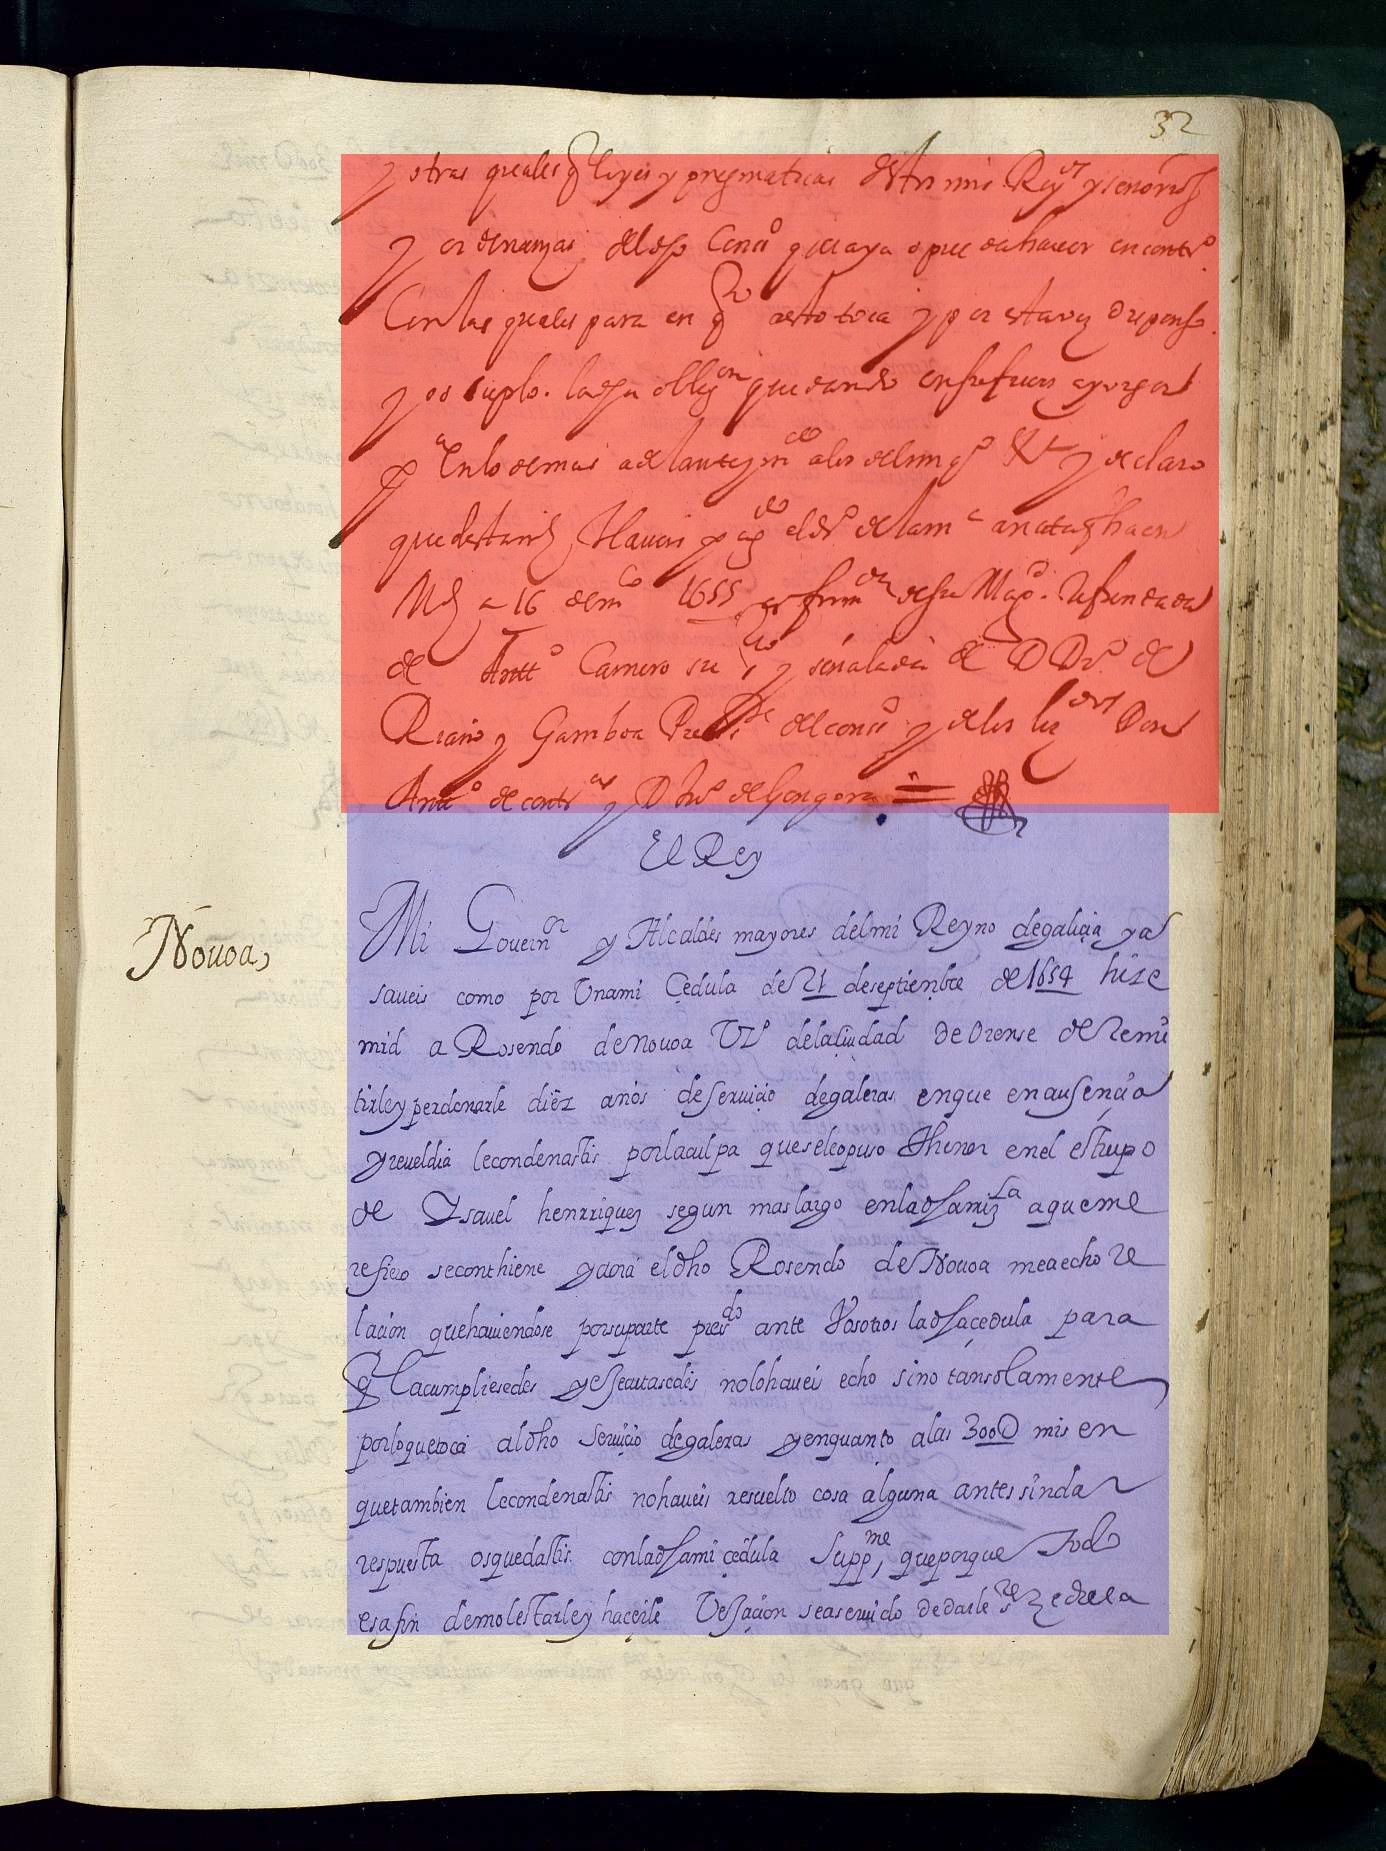 32
y otras quales q leyes y pregmaticas destos mis Reynos y senorios
y ordenanzas del dho Conso que aya o pueda haver en contro
Con las quales para en qto a esto toca y por esta vez dispenso
y os suplo. la dha obligon quedando en su fuerza y vigor
pa en lo demas adelante
y declaro
que desta mrd haveis pagdo el dro de la ma anata fha en
Md a 16 de mco 1655 firmda de su Magd. Refrendada
de Antto Carnero su srio y señalada de D Do de
Riaño y Gamboa Presidte del conso y de los lizdos Don
Antto de contras y D Juo de Gongora =
El Rey
Nouoa,
Mi Gouernor y Alcaldes mayores del mi Reyno degaliçia ya
saueis como por Vnami Çedula de 21 deseptienbre de 1654 hize
mrd a Rosendo deNouoa Vzo delaçiudad de Orense de Remi
tirley perdonarle diez anos deseruiçio degaleras enque enausençia
y reueldia lecondenastis porlaculpa queseleopuso thener enel estrupo
de Ysauel henrriquez segun maslargo enladha mi zla aqueme
refiero seconthiene y aora eldho Rosendo deNouoa meaecho re
laçion quehauiendose porsuparte presdo ante Vosotros ladha çedula para
q lacumpliesedes y executasedes nolohaueis echo sino tansolamente
porloquetoca aldho seruiçio degaleras y enquanto alas 300D mrs en
quetambien lecondenastis nohaueis resuelto cosa alguna antes sindar
respuesta osquedastis conladha mi çedula suppme, queporque todo
esafin demolestarley haçerle Vexaçion seaseruido dedarle zedula